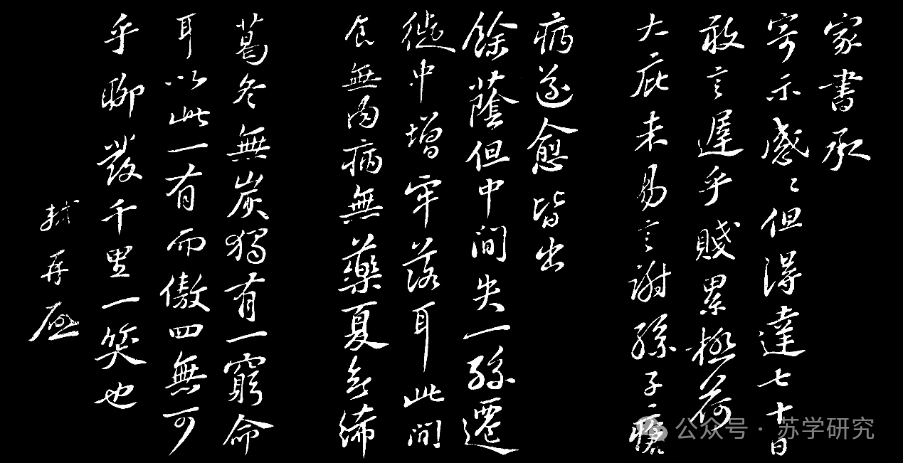 家書承
寄示感〻但得達七十日
敢言遲乎賤累極荷
大庇未易言謝孫子瘡
病遂愈皆出
餘蔭但中間失一孫遷
徙中增牢落耳此間
食無肉病無藥夏無絺
葛冬無炭獨有一窮命
耳以此一有而傲四無可
乎聊發千里一笑也
軾再啟
公众号·苏学研究